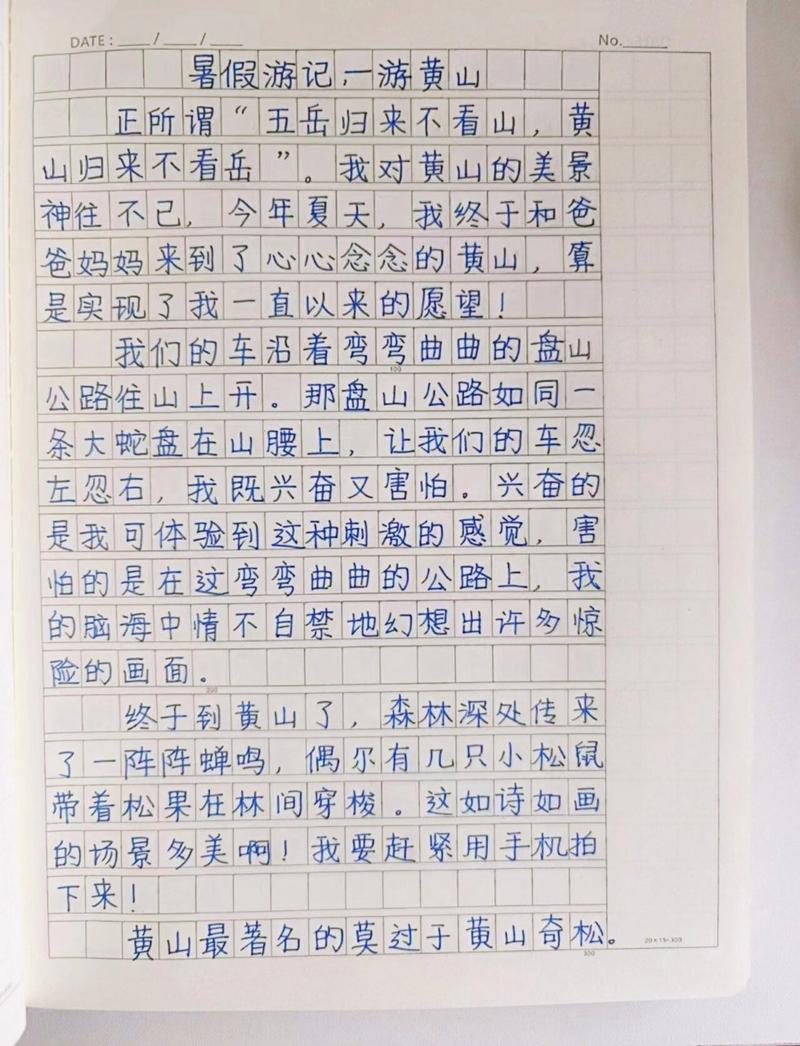 DATE: ___/___/___ No.____
暑假游记,一游黄山
正所谓“五岳归来不看山，黄
山归来不看岳”。我对黄山的美景
神往不已，今年夏天，我终于和爸
爸妈妈来到了心心念念的黄山，算
是实现了我一直以来的愿望！
我们的车沿着弯弯曲曲的盘山
100
公路往山上开。那盘山公路如同一
条大蛇盘在山腰上，让我们的车忽
左忽右，我既兴奋又害怕。兴奋的
是我可体验到这种刺激的感觉，害
怕的是在这弯弯曲曲的公路上，我
的脑海中情不自禁地幻想出许多惊
险的画面。
200
终于到黄山了，森林深处传来
了一阵阵蝉鸣，偶尔有几只小松鼠
带着松果在林间穿梭。这如诗如画
的场景多美啊！我要赶紧用手机拍
下来！
黄山最著名的莫过于黄山奇松。
20×15=300
300